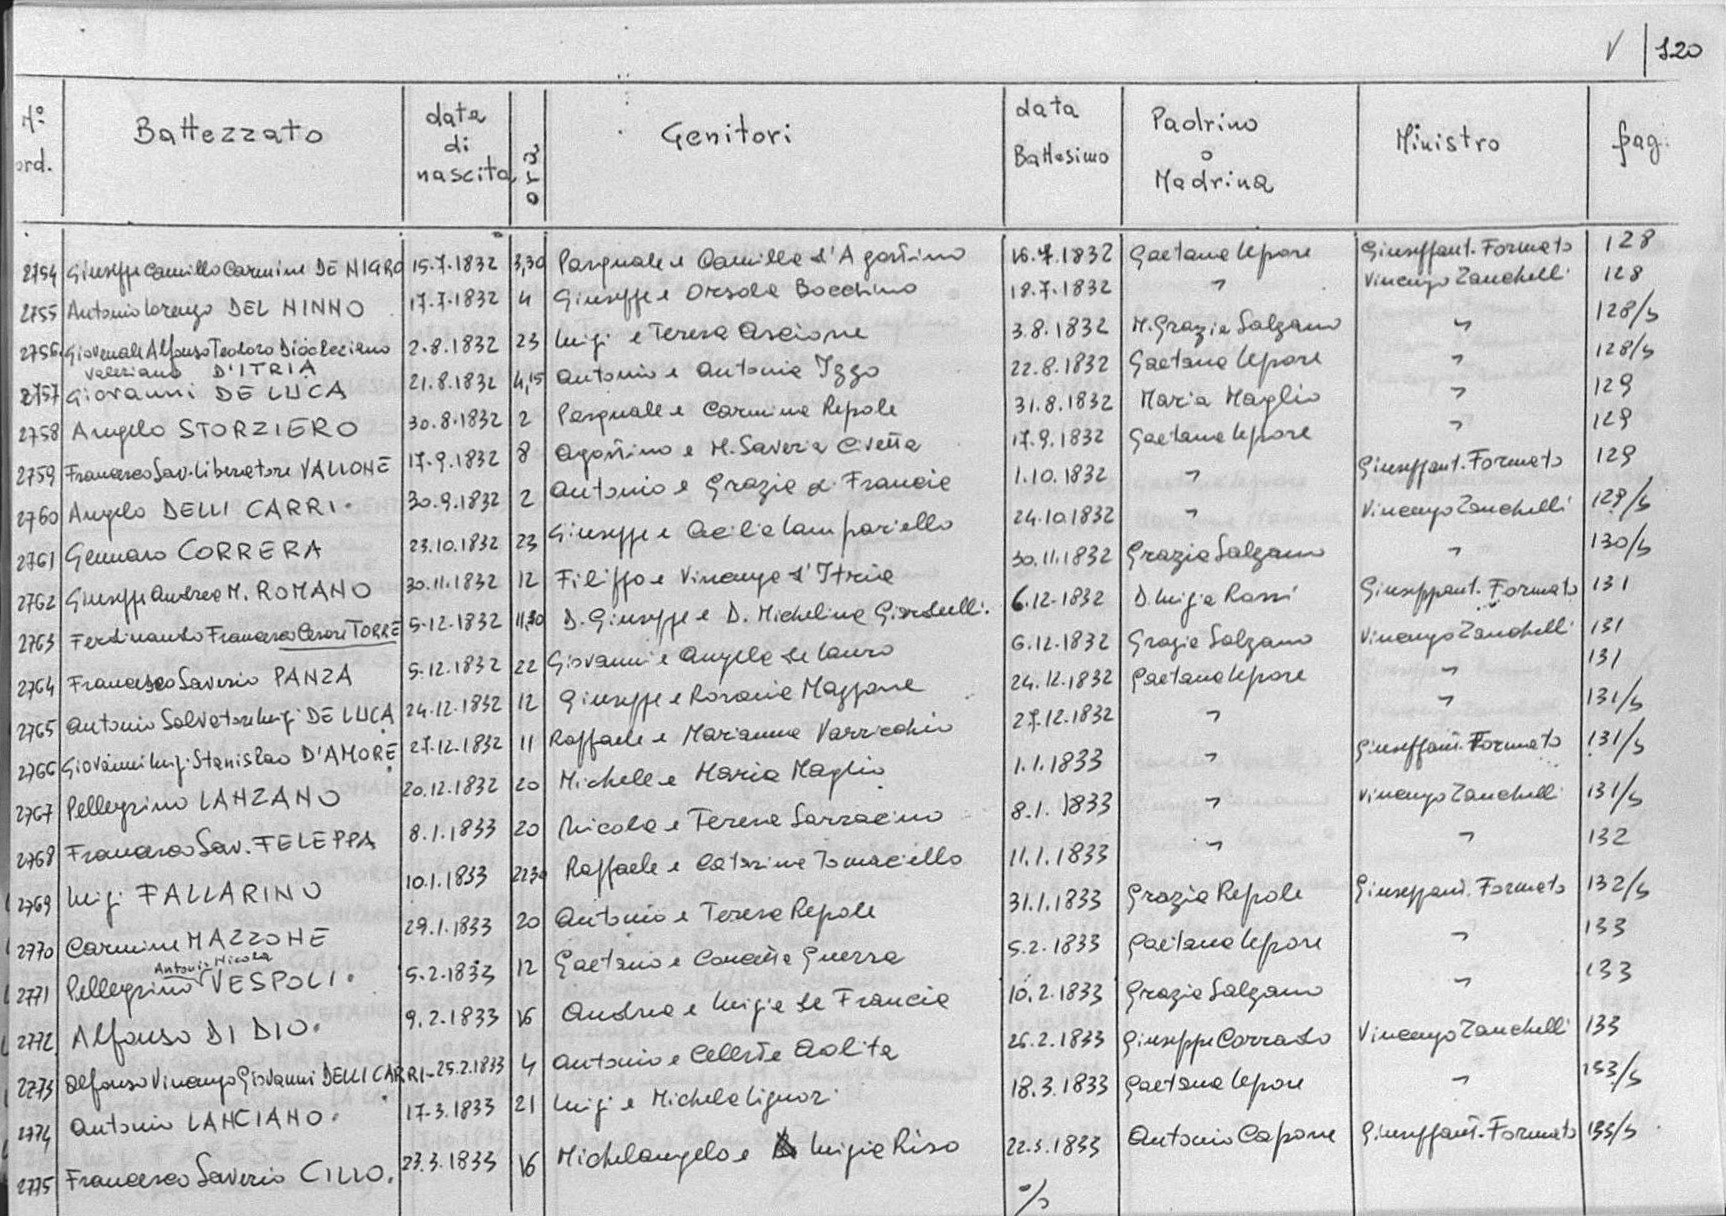 V | 120
N° ord. Battezzato data di nascita ora Genitori data Battesimo Padrino o Madrina Ministro pag.
2754 Giuseppe Camillo Carmine DE NIGRO 15.7.1832 3,30 Pasquale e Camilla d'Agostino 16.7.1832 Gaetana Lepore Giuseppant. Formato 128
2755 Antonio Lorenzo DEL NINNO 17.7.1832 4 Giuseppe e Orsola Bocchino 18.7.1832 " Vincenzo Zanchelli 128
2756 Giovenale Alfonso Teodoro Diocleziano Valeriano D'ITRIA 2.8.1832 23 Luigi e Teresa Ascione 3.8.1832 M. Grazia Salzano " 128/b
2757 Giovanni DE LUCA 21.8.1832 4,15 Antonio e Antonia Izzo 22.8.1832 Gaetana Lepore " 128/b
2758 Angelo STORZIERO 30.8.1832 2 Pasquale e Carmina Repole 31.8.1832 Maria Maglio " 129
2759 Francesco Sav. Liberatore VALLONE 17.9.1832 8 Agostino e M. Saveria Civetta 17.9.1832 Gaetana Lepore " 129
2760 Angelo DELLI CARRI. 30.9.1832 2 Antonio e Grazia d. Francia 1.10.1832 " Giuseppant. Formato 129
2761 Gennaro CORRERA 23.10.1832 23 Giuseppe e Cecilia Lampariello 24.10.1832 " Vincenzo Zanchelli 129/b
2762 Giuseppe Andrea M. ROMANO 30.11.1832 12 Filippo e Vincenza d'Itria 30.11.1832 Grazia Salzano " 130/b
2763 Ferdinando Francesco Cesare TORRE 5.12.1832 11,30 D. Giuseppe e D. Michelina Giardulli. 6.12.1832 D. Luigia Rossi Giuseppant. Formato 131
2764 Francesco Saverio PANZA 5.12.1832 22 Giovanni e Angela de Lauro 6.12.1832 Grazia Salzano Vincenzo Zanchelli 131
2765 Antonio Salvatore Luigi DE LUCA 24.12.1832 12 Giuseppe e Rosaria Mazzone 24.12.1832 Gaetana Lepore " 131
2766 Giovanni Luigi Stanislao D'AMORE 27.12.1832 11 Raffaele e Marianna Varricchio 27.12.1832 " " 131/b
2767 Pellegrino LANZANO 20.12.1832 20 Michele e Maria Maglio 1.1.1833 " Giuseppant. Formato 131/b
2768 Francesco Sav. FELEPPA 8.1.1833 20 Nicola e Teresa Sarracino 8.1.1833 " Vincenzo Zanchelli 131/b
2769 Luigi FALLARINO 10.1.1833 2230 Raffaele e Caterina Tomaciello 11.1.1833 " " 132
2770 Carmine MAZZONE 29.1.1833 20 Antonio e Teresa Repole 31.1.1833 Grazia Repole Giuseppant. Formato 132/b
2771 Pellegrino Antonio Nicola VESPOLI. 5.2.1833 12 Gaetano e Concetta Guerra 5.2.1833 Gaetana Lepore " 133
2772 Alfonso DI DIO. 9.2.1833 16 Andrea e Luigia de Francia 10.2.1833 Grazia Salzano " 133
2773 Alfonso Vincenzo Giovanni DELLI CARRI - 25.2.1833 4 Antonio e Celeste Aolita 26.2.1833 Giuseppe Corrado Vincenzo Zanchelli 133
2774 Antonio LANCIANO. 17.3.1833 21 Luigi e Michela Liguori 18.3.1833 Gaetana Lepore " 133/b
2775 Francesco Saverio CILLO. 23.3.1833 16 Michelangelo e Luigia Riso 22.3.1833 Antonio Capone Giuseppant. Formato 133/b
%